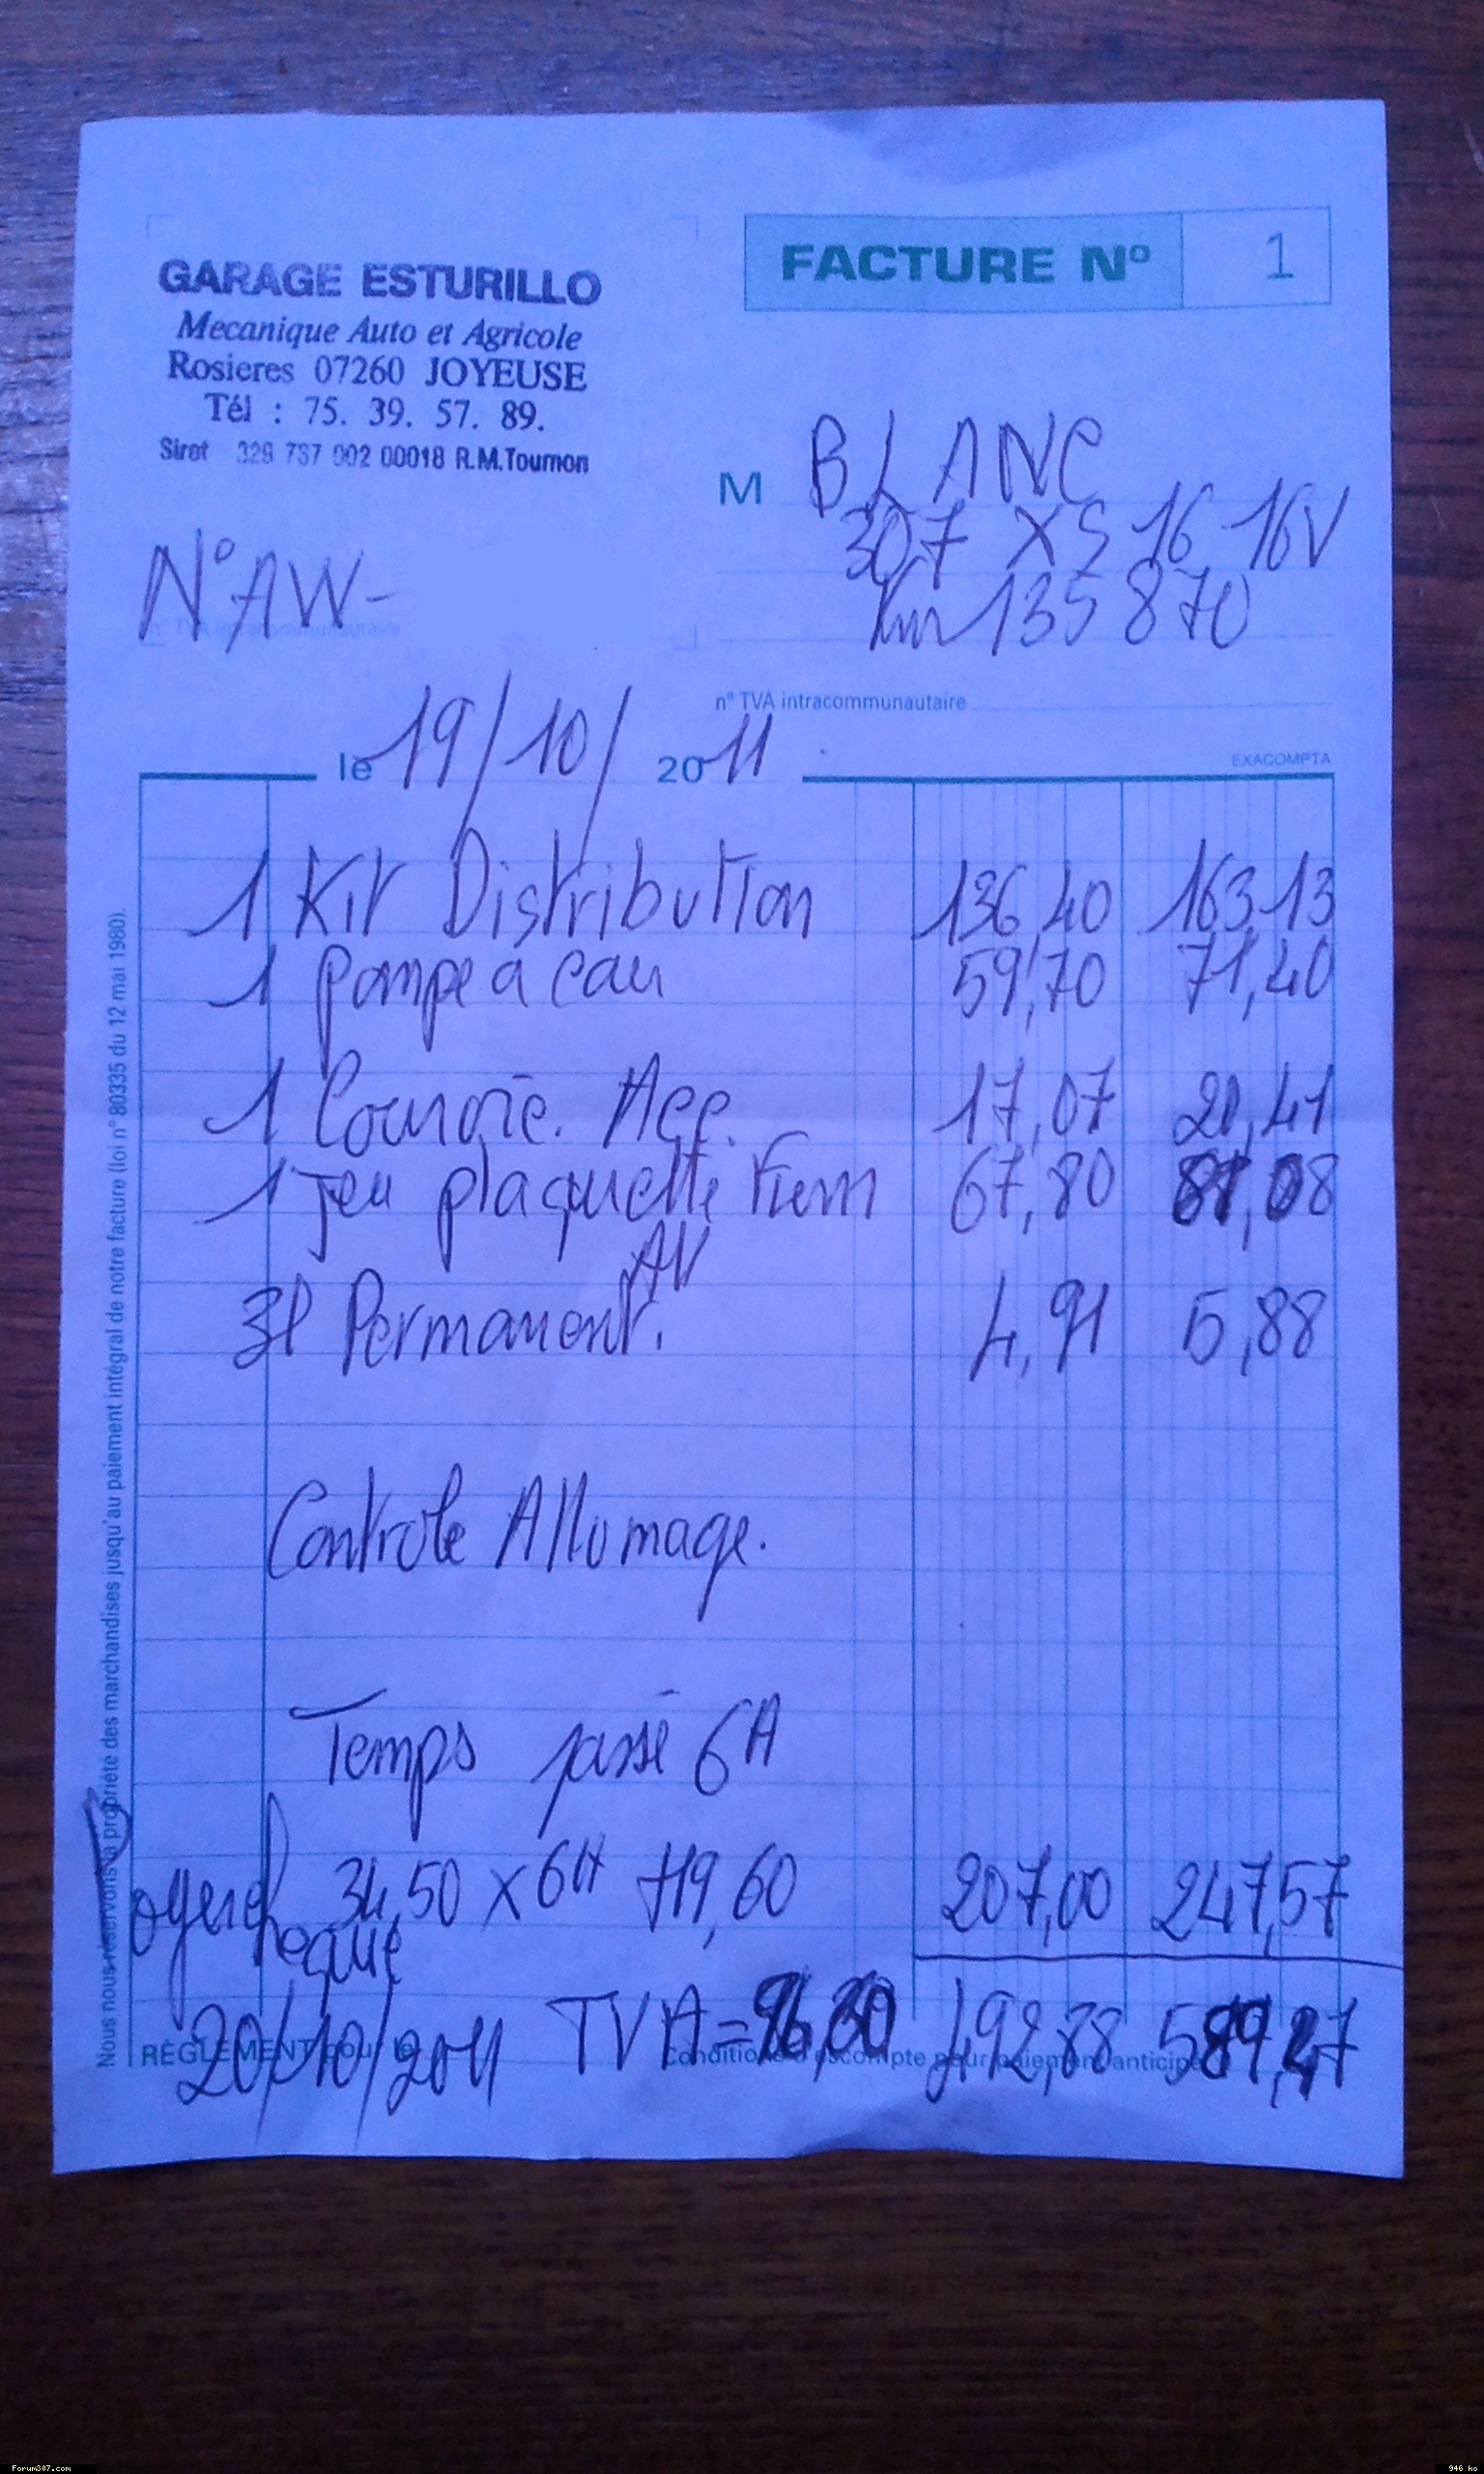 GARAGE ESTURILLO
Mecanique Auto et Agricole
Rosieres 07260 JOYEUSE
Tél : 75. 39. 57. 89.
Siret 329 737 002 00018 R.M.Tournon
FACTURE Nº 1
M BLANC
307 XS 16 16V
Km 135 870
N° AW-
n° TVA intracommunautaire
n° TVA intracommunautaire
le 19/10/ 2011
EXACOMPTA
1 Kit Distribution 136,40 163,13
1 Pompe a eau 59,70 71,40
1 Courroie. Acc. 17,07 20,41
1 Jeu plaquette Frein 67,80 81,08
AV
3l Permanent. 4,91 5,88
Controle Allumage.
Temps passé 6H
34,50 x 6H +19,60 207,00 247,57
Payer cheque
20/10/2011 TVA= 492,88
RÈGLEMENT pour le
Conditions d'escompte pour paiement anticipé
Nous nous réservons la propriété des marchandises jusqu'au paiement intégral de notre facture (loi n° 80335 du 12 mai 1980).
Forum307.com
946 ko